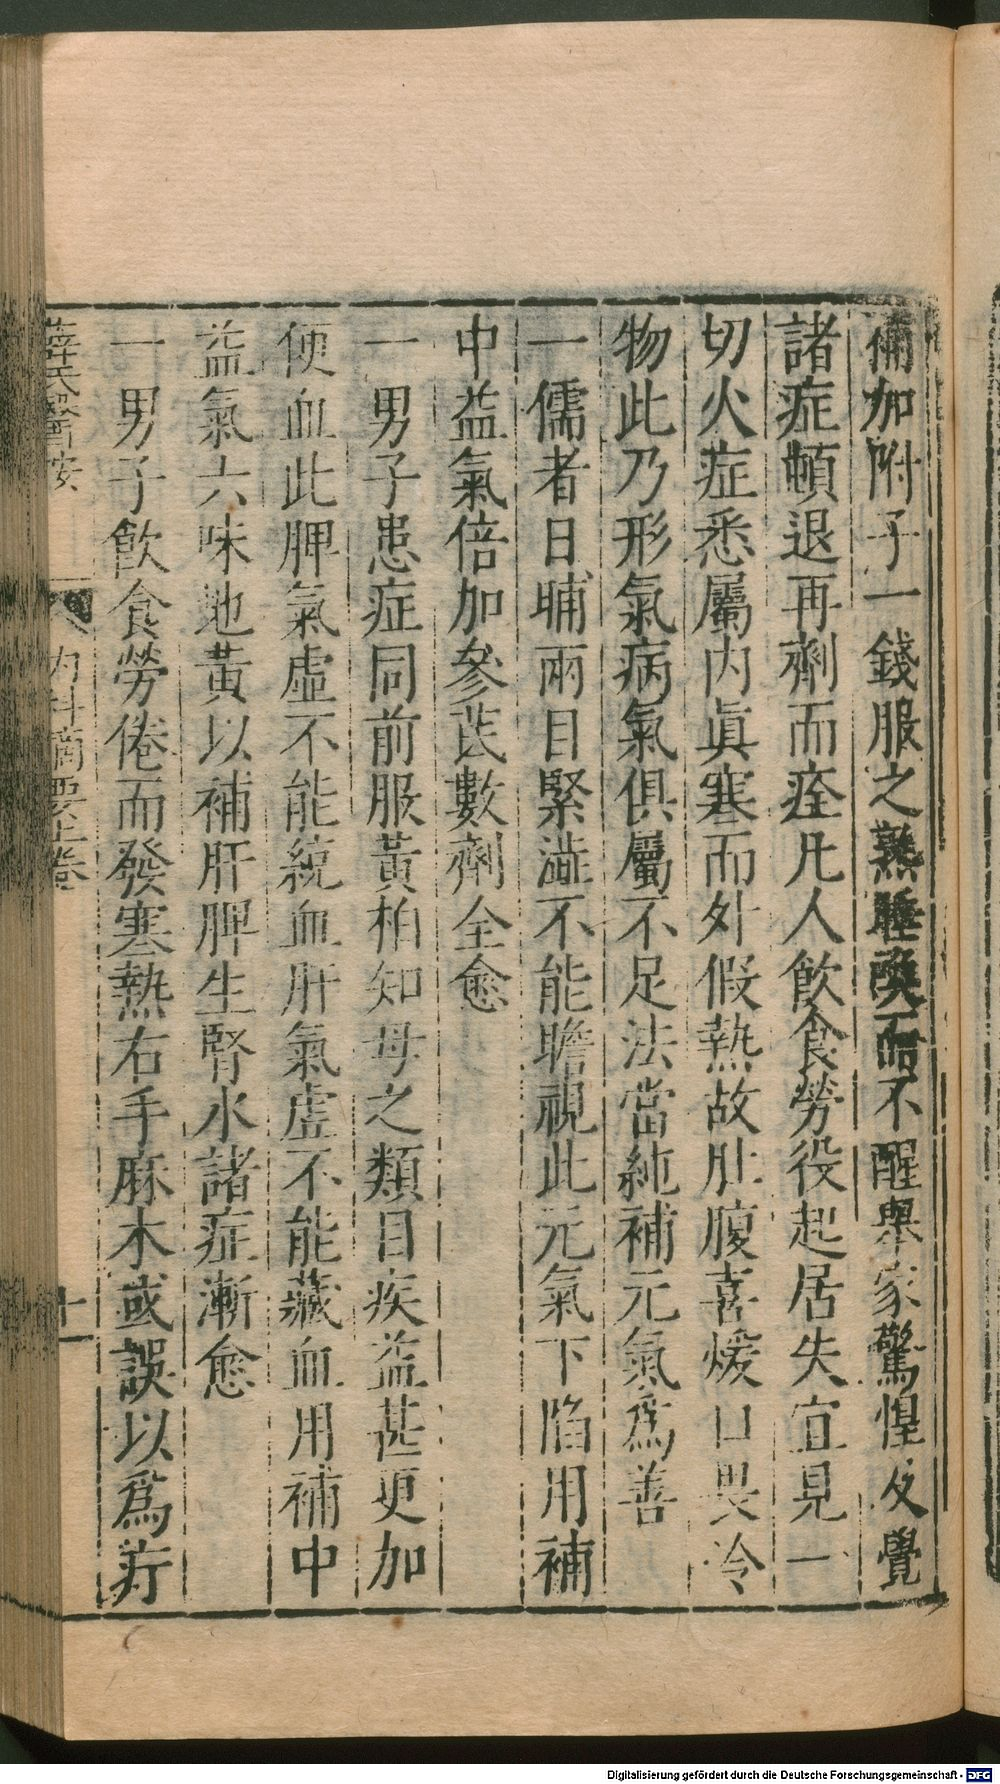 倆加附子一錢服之熟睡喚而不醒舉家驚惶及覺
諸症頓退再劑而痊凡人飲食勞役起居失宜見一
切火症悉屬内眞寒而外假熱故肚腹喜煖口畏冷
物此乃形氣病氣俱屬不足法當純補元氣爲善
一儒者日晡兩目緊澁不能瞻視此元氣下陷用補
中益氣倍加參芪數劑全愈
一男子患症同前服黃柏知母之類目疾益甚更加
便血此脾氣虛不能統血肝氣虛不能藏血用補中
益氣六味地黃以補肝脾生腎水諸症漸愈
一男子飲食勞倦而發寒熱右手麻木或誤以爲疔
薛氏醫按 内科摘要上卷 十一
Digitalisierung gefördert durch die Deutsche Forschungsgemeinschaft - DFG